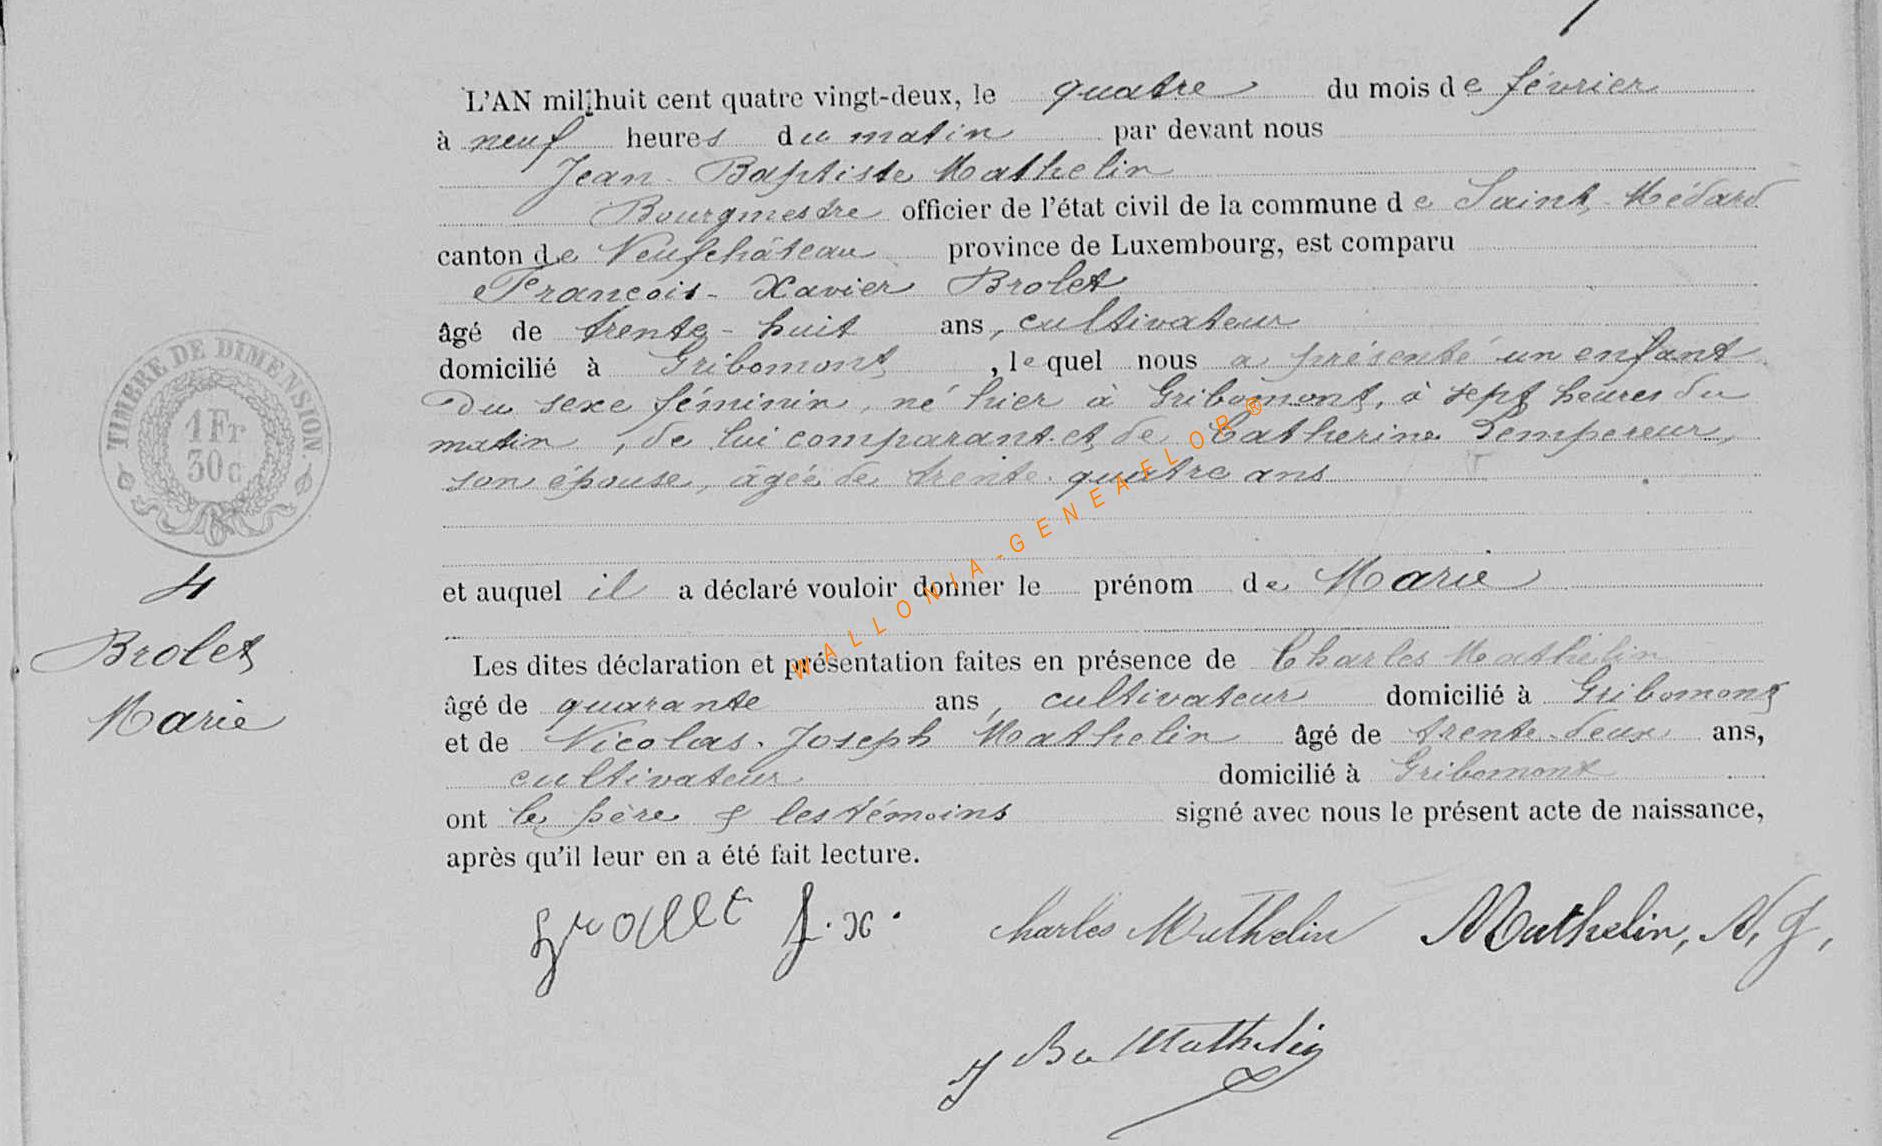 L'AN mil huit cent quatre vingt-deux, le quatre du mois de février
à neuf heures du matin par devant nous
Jean-Baptiste Mathelin
Bourgmestre officier de l'état civil de la commune de Saint-Médard
canton de Neufchâteau province de Luxembourg, est comparu
François-Xavier Brolet
âgé de trente-huit ans, cultivateur
domicilié à Gribomont, lequel nous a présenté un enfant
du sexe féminin, né hier à Gribomont, à sept heures du
matin, de lui comparant et de Catherine Lempereur,
son épouse, âgée de trente-quatre ans
et auquel il a déclaré vouloir donner le prénom de Marie
Les dites déclaration et présentation faites en présence de Charles Mathelin
âgé de quarante ans, cultivateur domicilié à Gribomont
et de Nicolas-Joseph Mathelin âgé de trente-deux ans,
cultivateur domicilié à Gribomont
ont le père & les témoins signé avec nous le présent acte de naissance,
après qu'il leur en a été fait lecture.
TIMBRE DE DIMENSION.
1 Fr
30 c
4
Brolet
Marie
WALLONIA-GENEAFLOR®
Brollet f.x.
Charles Mathelin
Mathelin, N, J,
J Bte Mathelin